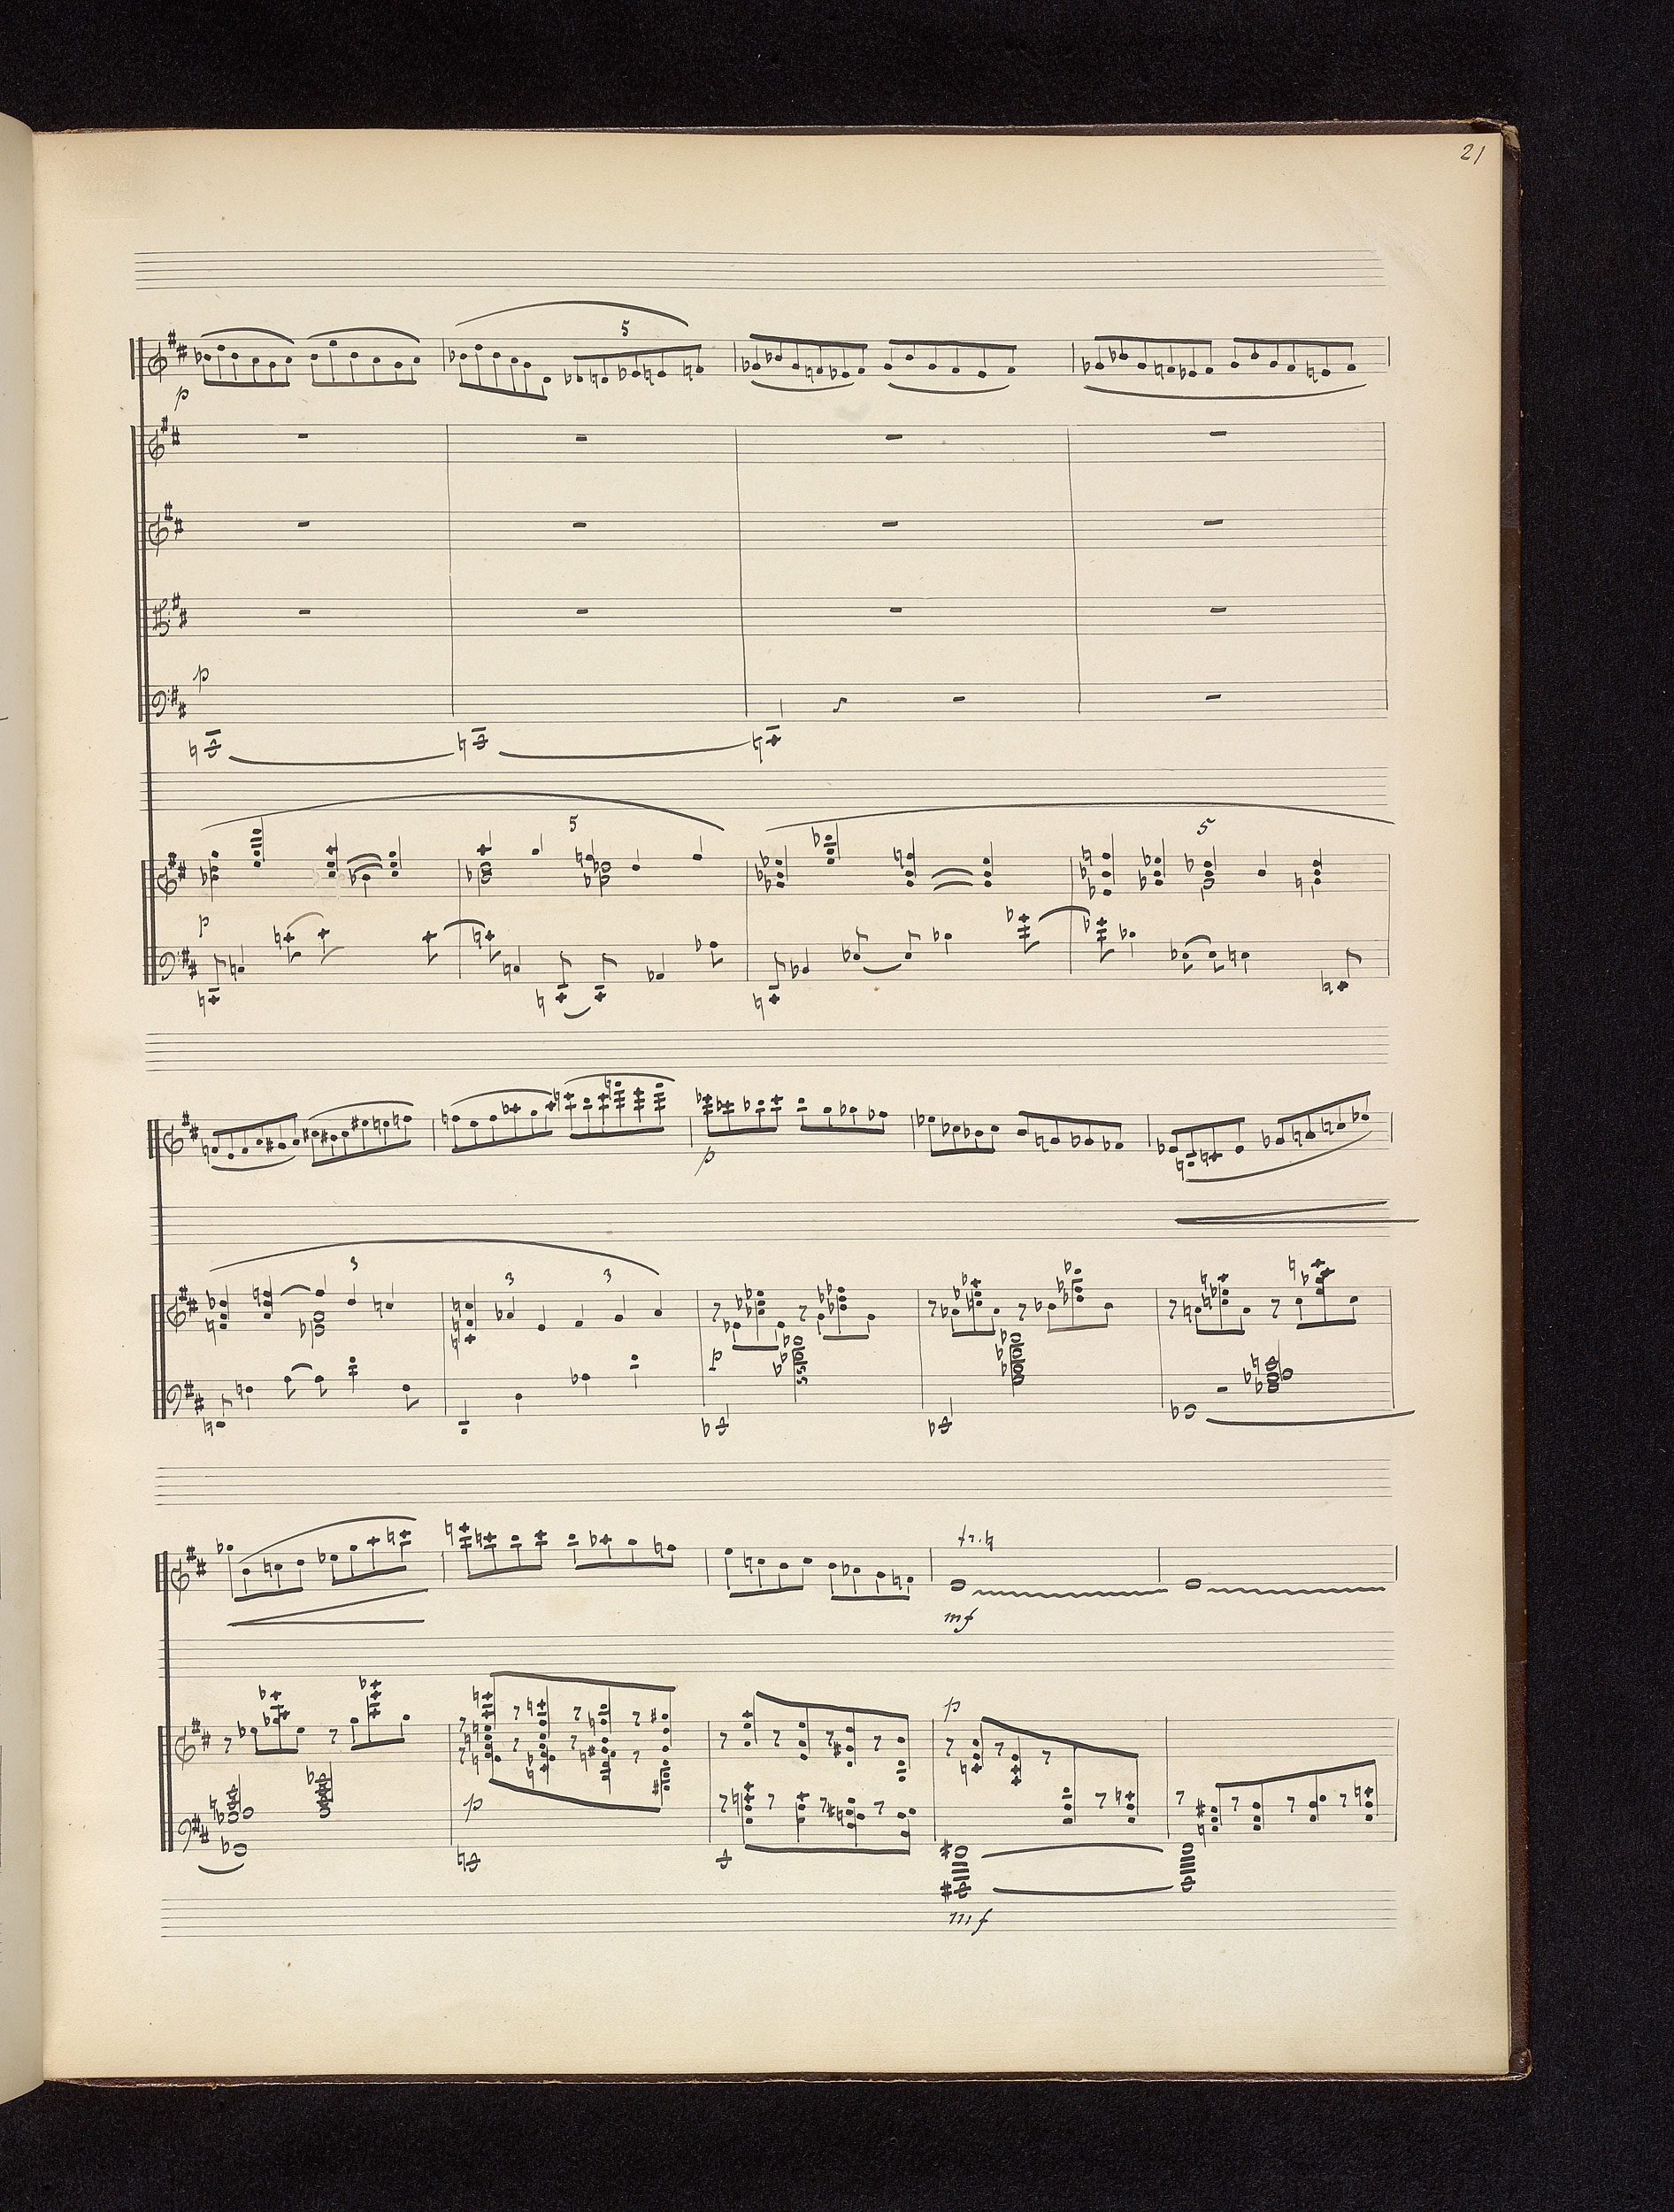 21
5
p
p
5
5
p
p
3
3
3
p
tr.
mf
p
p
mf